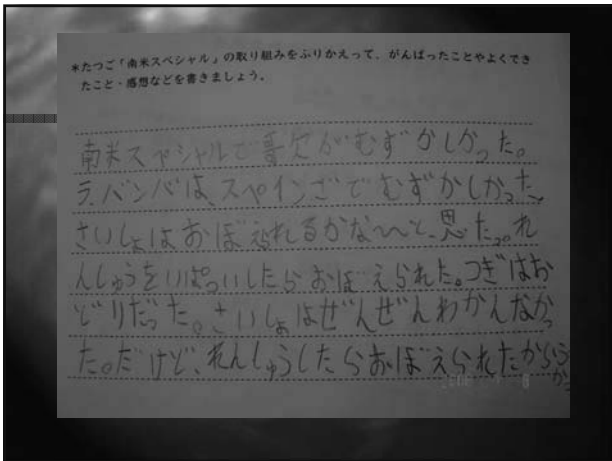 *たつご「南米スペシャル」の取り組みをふりかえって、がんばったことやよくでき
たこと・感想などを書きましょう。
南米スペシャルで歌がむずかしかった。
ラ、バンバは、スペインごでむずかしかった、
さいしょはおぼえられるかな〜〜と、思たっ。れ
んしゅうをいぱっいしたらおぼえられた。つぎはお
どりだった。さいしょはぜんぜんわかんなかっ
た。だけど、れんしゅうしたらおぼえられたから